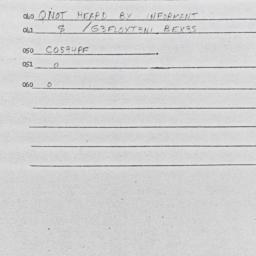 040 QNOT HEARD BY INFORMANT
041 8 /G3FLOXT3NI, BEX3S
050 C0534PF
051 0
060 0